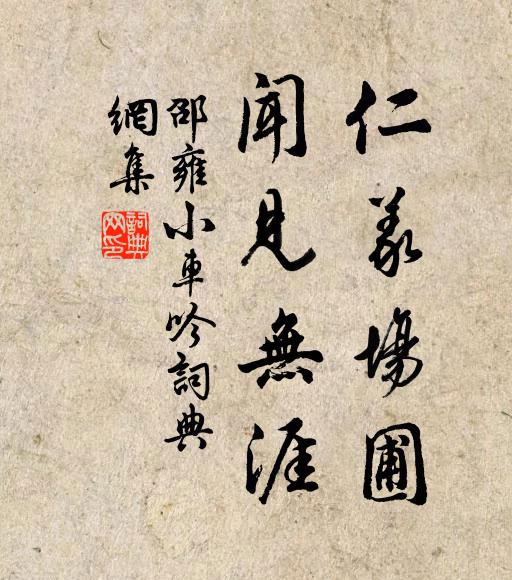 仁義場圃
聞見無涯
邵雍小車吟詞典
網集
詞典網印